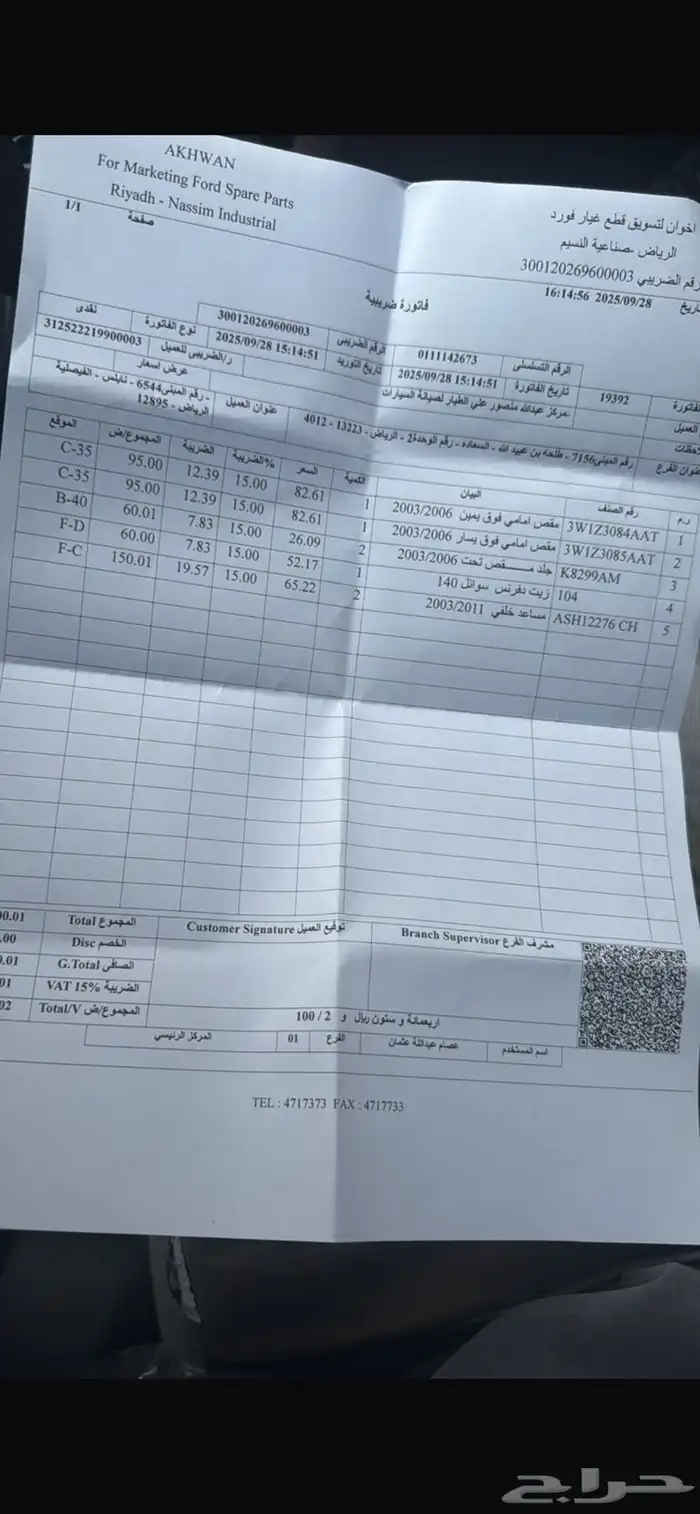 AKHWAN
For Marketing Ford Spare Parts
Riyadh - Nassim Industrial
1/1 صفحة
اخوان لتسويق قطع غيار فورد
الرياض -صناعية النسيم
رقم الضريبي 300120269600003
16:14:56 2025/09/28
فاتورة ضريبية
الفاتورة 19392 الرقم التسلسلي 0111142673 الرقم الضريبي 300120269600003 نوع الفاتورة نقدى
العميل تاريخ الفاتورة 2025/09/28 15:14:51 تاريخ التوريد 2025/09/28 15:14:51 ر/الضريبى للعميل 312522219900003
مركز عبدالله منصور علي الطيار لصيانة السيارات عرض اسعار
عنوان الفرع رقم المبنى7156 - طلحه بن عبيد الله - السعاده - رقم الوحدة2 - الرياض - 13223 - 4012 عنوان العميل - رقم المبنى6544 - نابلس - الفيصلية - الرياض - 12895
ر.م رقم الصنف البيان الكمية السعر %الضريبة الضريبة المجموع/ض الموقع
1 3W1Z3084AAT مقص امامي فوق يمين 2003/2006 1 82.61 15.00 12.39 95.00 C-35
2 3W1Z3085AAT مقص امامي فوق يسار 2003/2006 1 82.61 15.00 12.39 95.00 C-35
3 K8299AM جلد مقص تحت 2003/2006 2 26.09 15.00 7.83 60.01 B-40
4 104 زيت دفرنس سوائل 140 1 52.17 15.00 7.83 60.00 F-D
5 ASH12276 CH مساعد خلفي 2003/2011 2 65.22 15.00 19.57 150.01 F-C
المجموع Total
الخصم Disc
الصافى G.Total
الضريبة VAT 15%
المجموع/ض Total/V
توقيع العميل Customer Signature
مشرف الفرع Branch Supervisor
اربعمائة و ستون ريال و 2 / 100
اسم المستخدم عصام عبدالله عثمان الفرع 01 المركز الرئيسي
TEL : 4717373 FAX : 4717733
حراج